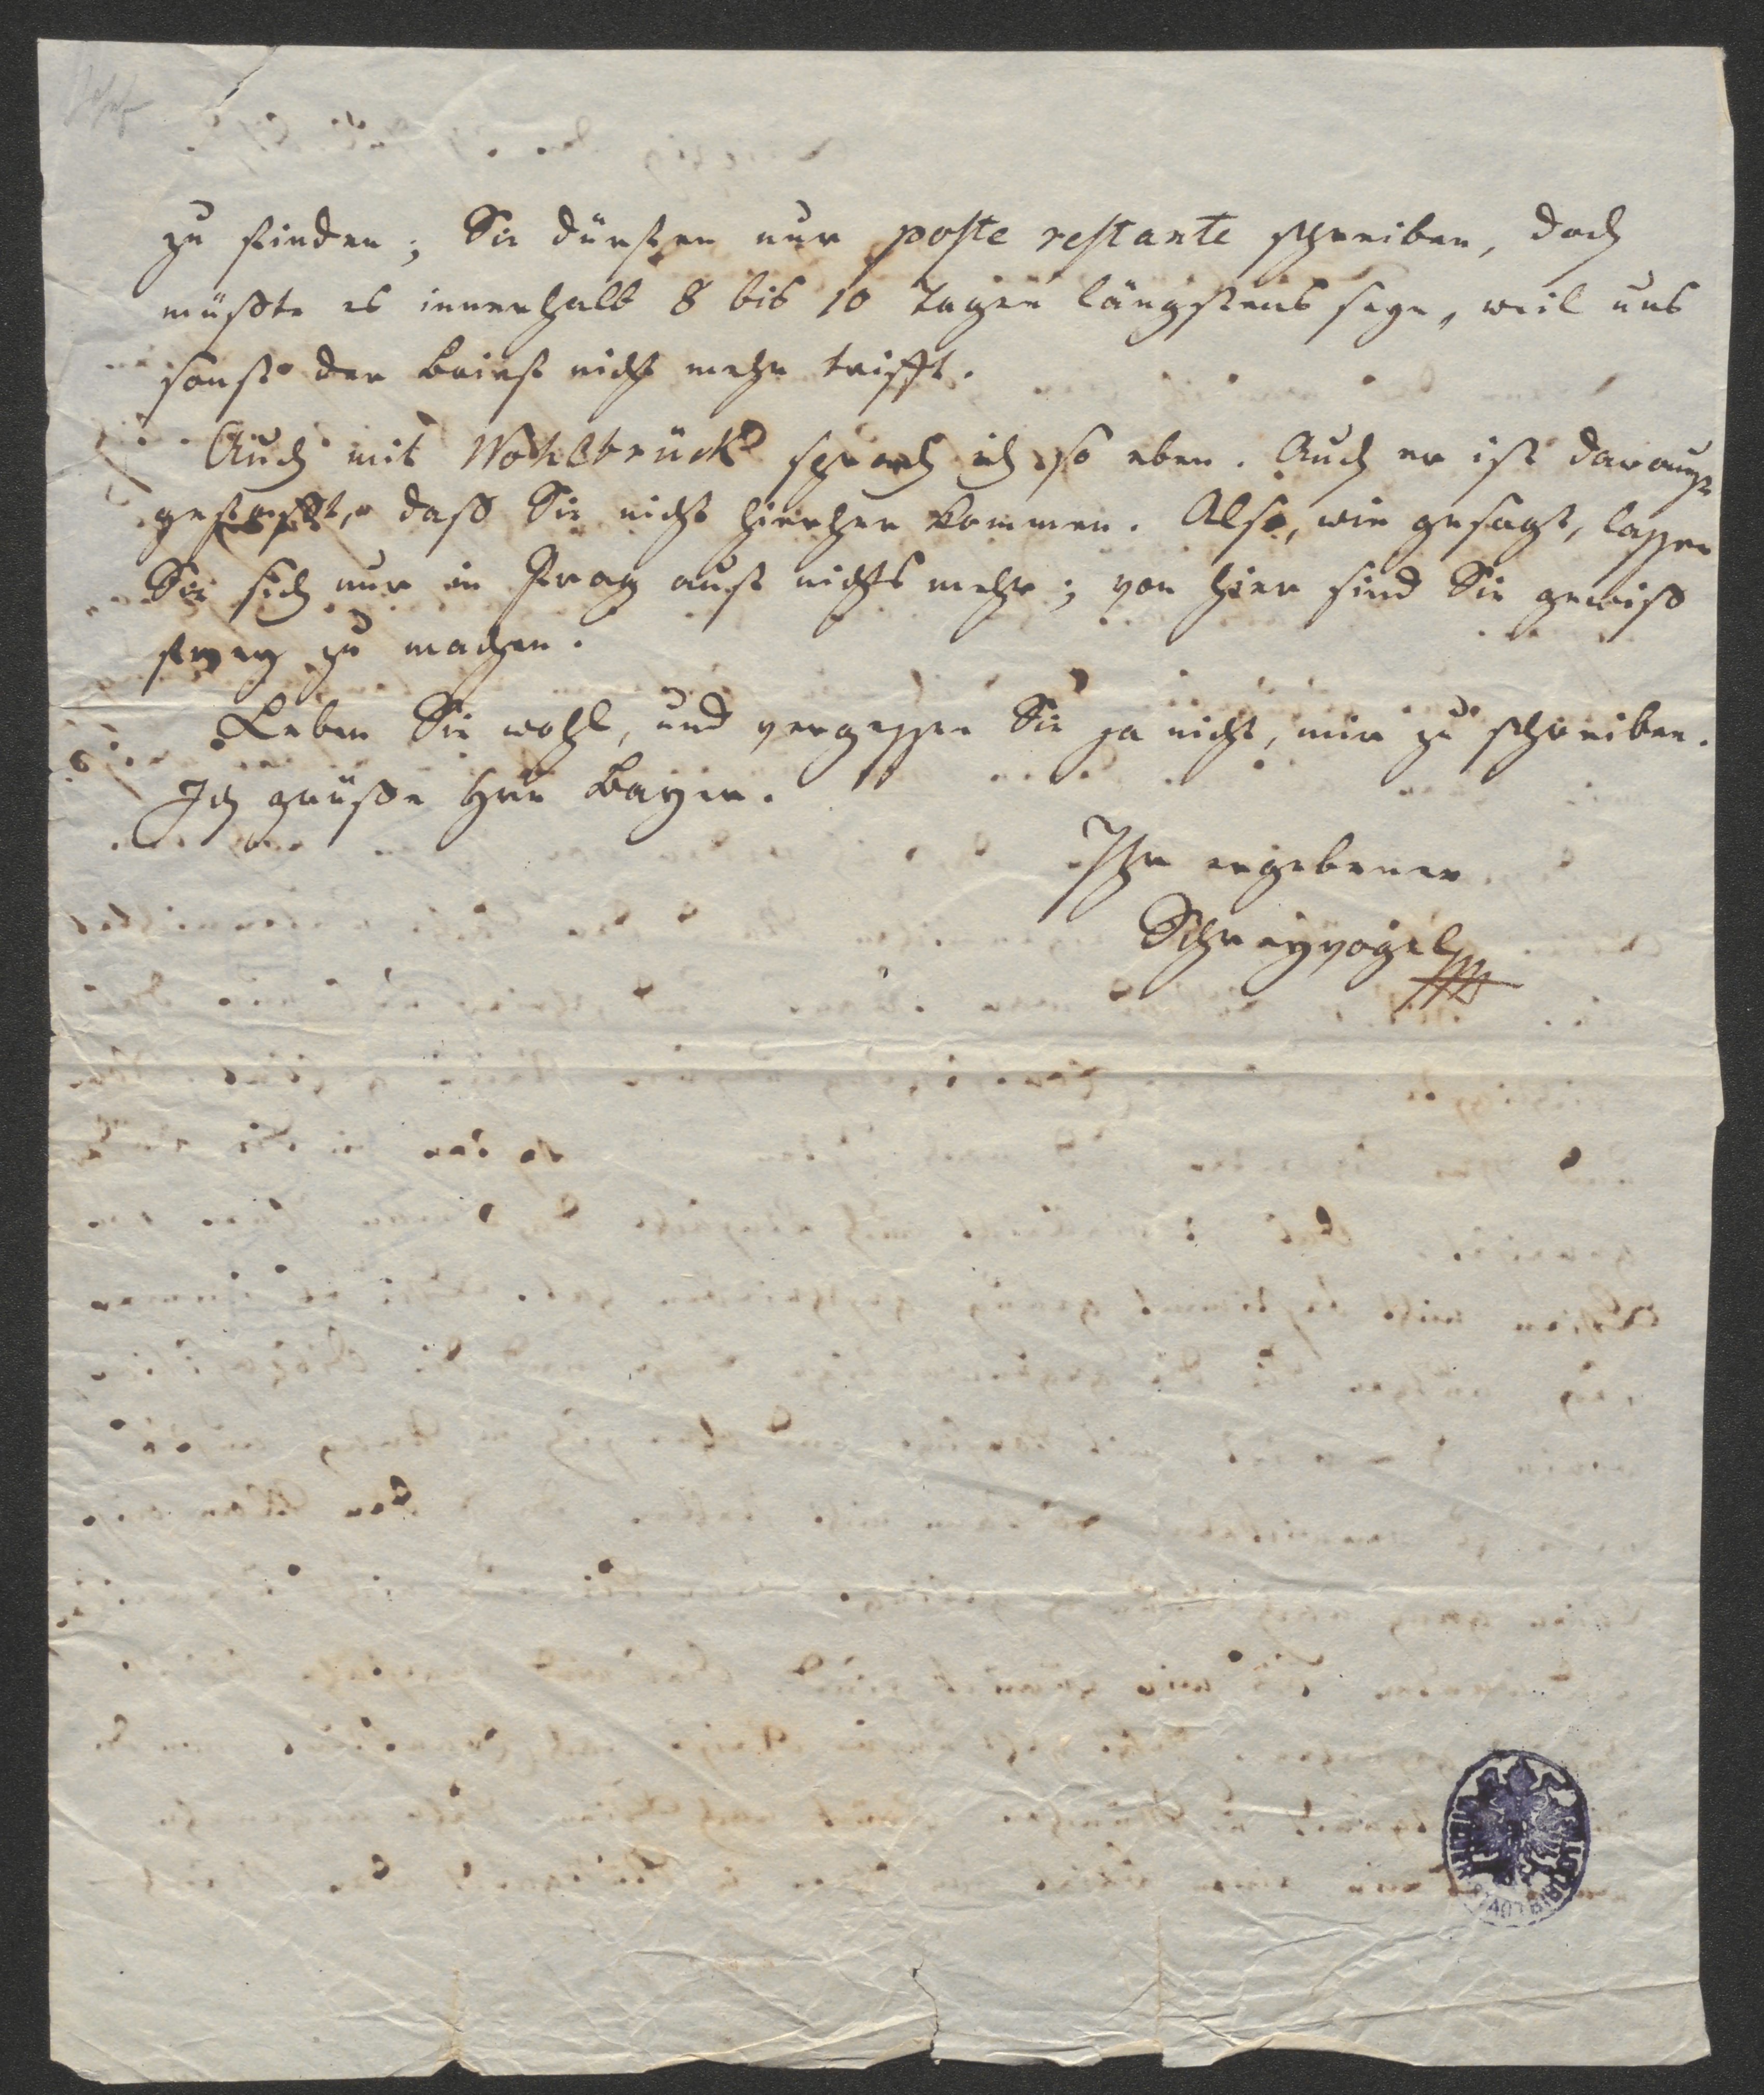 zu finden; Sie dürften nur poste restante schreiben, doch
müßte es innerhalb 8 bis 10 Tagen längstens seyn, weil uns
sonst der Brief nicht mehr trifft.
Auch mit Wohlbrück sprach ich so eben. Auch er ist darauf
gefaßt, daß Sie nicht hierher kommen. Also, wie gesagt, lassen
Sie sich nur in Prag auf nichts mehr; von hier sind Sie gewiß
frey zu machen.
Leben Sie wohl, und vergessen Sie ja nicht, mir zu schreiben.
Ich grüße Hrn Bayer.
Ihr ergebener
Schreyvogel